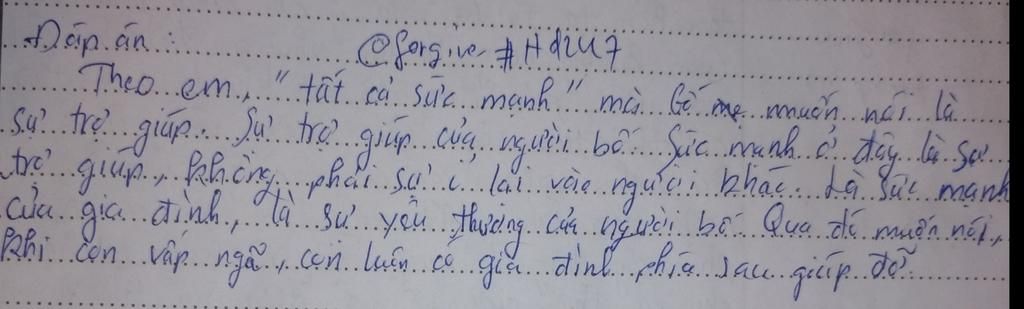 Đáp án: @forgive #Hd247
Theo em, "tất cả sức mạnh" mà bố mẹ muốn nói là
sự trợ giúp. Sự trợ giúp của người bố. Sức mạnh ở đây là sự
trợ giúp, không phải sự ỉ lại vào người khác. Là sức mạnh
của gia đình, là sự yêu thương của người bố. Qua đó muốn nói,
khi con vấp ngã, con luôn có gia đình phía sau giúp đỡ.